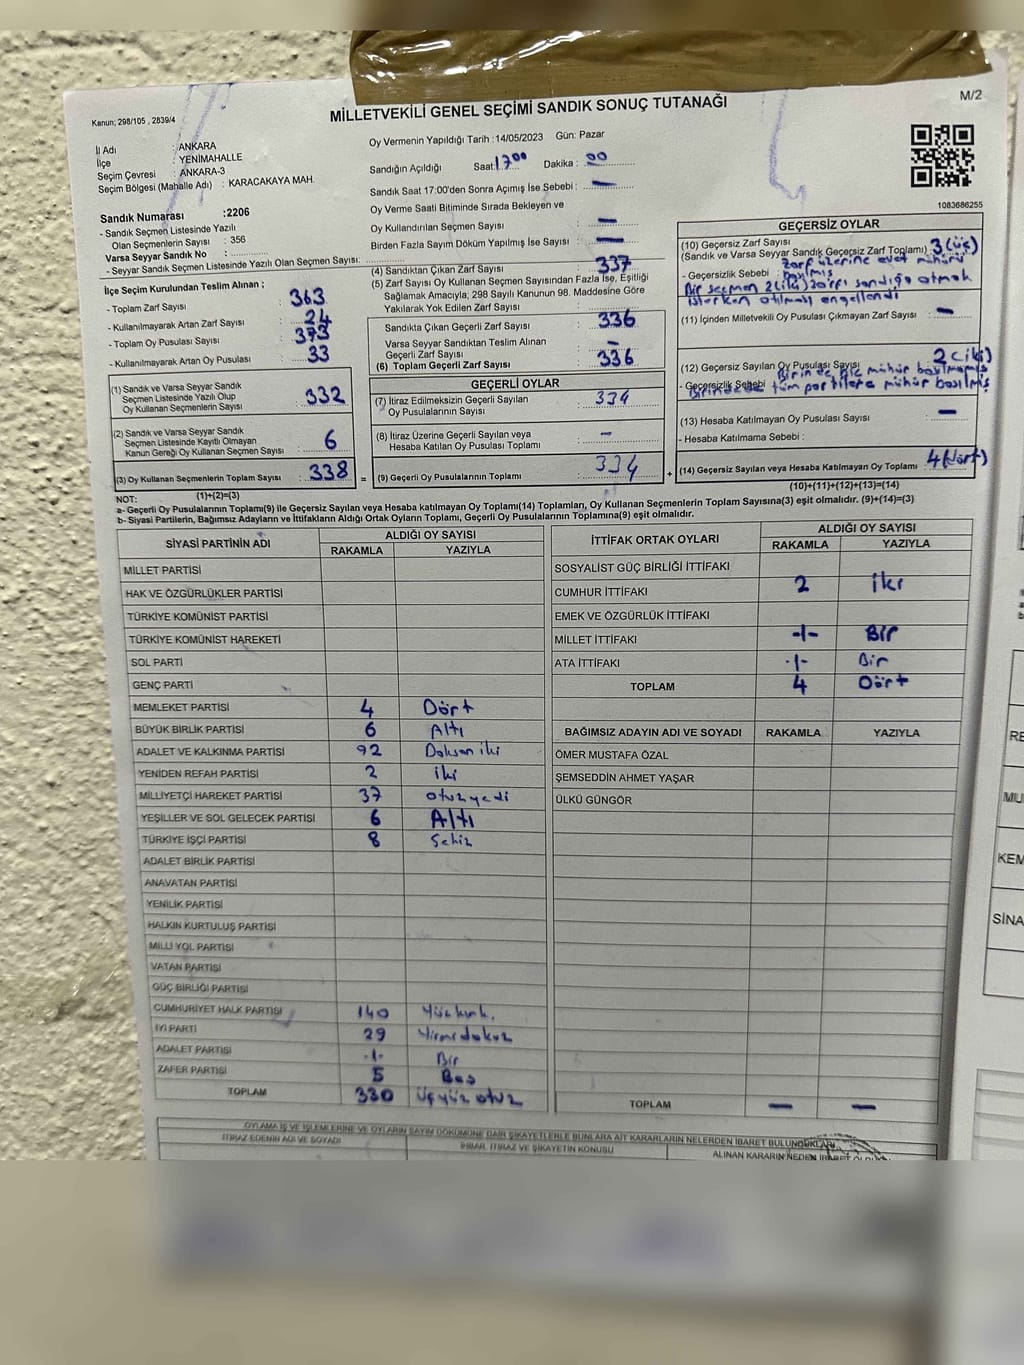 M/2
MİLLETVEKİLİ GENEL SEÇİMİ SANDIK SONUÇ TUTANAĞI
Kanun; 298/105 , 2839/4
İl Adı : ANKARA
İlçe : YENİMAHALLE
Seçim Çevresi : ANKARA-3
Seçim Bölgesi (Mahalle Adı) : KARACAKAYA MAH.
Sandık Numarası :2206
- Sandık Seçmen Listesinde Yazılı
Olan Seçmenlerin Sayısı : 356
Varsa Seyyar Sandık No :
- Seyyar Sandık Seçmen Listesinde Yazılı Olan Seçmen Sayısı:
Oy Vermenin Yapıldığı Tarih :14/05/2023 Gün: Pazar
Sandığın Açıldığı Saat: 17.00 Dakika : 00
Sandık Saat 17:00'den Sonra Açımış İse Sebebi : —
Oy Verme Saati Bitiminde Sırada Bekleyen ve
Oy Kullandırılan Seçmen Sayısı —
Birden Fazla Sayım Döküm Yapılmış İse Sayısı —
1083686255
İlçe Seçim Kurulundan Teslim Alınan ;
- Toplam Zarf Sayısı : 363
- Kullanılmayarak Artan Zarf Sayısı : 24
- Toplam Oy Pusulası Sayısı : 373
- Kullanılmayarak Artan Oy Pusulası : 33
(1) Sandık ve Varsa Seyyar Sandık
Seçmen Listesinde Yazılı Olup
Oy Kullanan Seçmenlerin Sayısı : 332
(2) Sandık ve Varsa Seyyar Sandık
Seçmen Listesinde Kayıtlı Olmayan
Kanun Gereği Oy Kullanan Seçmen Sayısı : 6
(3) Oy Kullanan Seçmenlerin Toplam Sayısı : 338
(1)+(2)=(3)
(4) Sandıktan Çıkan Zarf Sayısı : 337
(5) Zarf Sayısı Oy Kullanan Seçmen Sayısından Fazla İse, Eşitliği
Sağlamak Amacıyla, 298 Sayılı Kanunun 98. Maddesine Göre
Yakılarak Yok Edilen Zarf Sayısı :
Sandıkta Çıkan Geçerli Zarf Sayısı : 336
Varsa Seyyar Sandıktan Teslim Alınan
Geçerli Zarf Sayısı : —
(6) Toplam Geçerli Zarf Sayısı : 336
GEÇERLİ OYLAR
(7) İtiraz Edilmeksizin Geçerli Sayılan
Oy Pusulalarının Sayısı : 334
(8) İtiraz Üzerine Geçerli Sayılan veya
Hesaba Katılan Oy Pusulası Toplamı : —
(9) Geçerli Oy Pusulalarının Toplamı : 334
GEÇERSİZ OYLAR
(10) Geçersiz Zarf Sayısı
(Sandık ve Varsa Seyyar Sandık Geçersiz Zarf Toplamı) 3 (üç)
- Geçersizlik Sebebi : Zarf üzerine evet mühürü basılmış
Bir seçmen 2 (iki) zarfı sandığa atmak
isterken atılması engellendi
(11) İçinden Milletvekili Oy Pusulası Çıkmayan Zarf Sayısı : —
(12) Geçersiz Sayılan Oy Pusulası Sayısı 2 (iki)
- Geçersizlik Sebebi Birinde hiç mühür basılmamış
Birinde de tüm partilere mühür basılmış
(13) Hesaba Katılmayan Oy Pusulası Sayısı : —
- Hesaba Katılmama Sebebi :
(14) Geçersiz Sayılan veya Hesaba Katılmayan Oy Toplamı : 4 (dört)
(10)+(11)+(12)+(13)=(14)
NOT:
a- Geçerli Oy Pusulalarının Toplamı(9) ile Geçersiz Sayılan veya Hesaba katılmayan Oy Toplamı(14) Toplamları, Oy Kullanan Seçmenlerin Toplam Sayısına(3) eşit olmalıdır. (9)+(14)=(3)
b- Siyasi Partilerin, Bağımsız Adayların ve İttifakların Aldığı Ortak Oyların Toplamı, Geçerli Oy Pusulalarının Toplamına(9) eşit olmalıdır.
SİYASİ PARTİNİN ADI ALDIĞI OY SAYISI
RAKAMLA YAZIYLA
MİLLET PARTİSİ
HAK VE ÖZGÜRLÜKLER PARTİSİ
TÜRKİYE KOMÜNİST PARTİSİ
TÜRKİYE KOMÜNİST HAREKETİ
SOL PARTİ
GENÇ PARTİ
MEMLEKET PARTİSİ 4 Dört
BÜYÜK BİRLİK PARTİSİ 6 Altı
ADALET VE KALKINMA PARTİSİ 92 Doksan iki
YENİDEN REFAH PARTİSİ 2 iki
MİLLİYETÇİ HAREKET PARTİSİ 37 otuzyedi
YEŞİLLER VE SOL GELECEK PARTİSİ 6 Altı
TÜRKİYE İŞÇİ PARTİSİ 8 Sekiz
ADALET BİRLİK PARTİSİ
ANAVATAN PARTİSİ
YENİLİK PARTİSİ
HALKIN KURTULUŞ PARTİSİ
MİLLİ YOL PARTİSİ
VATAN PARTİSİ
GÜÇ BİRLİĞİ PARTİSİ
CUMHURİYET HALK PARTİSİ 140 Yüzkırk.
İYİ PARTİ 29 Yirmidokuz
ADALET PARTİSİ -1- Bir
ZAFER PARTİSİ 5 Beş
TOPLAM 330 Üçyüz otuz
İTTİFAK ORTAK OYLARI ALDIĞI OY SAYISI
RAKAMLA YAZIYLA
SOSYALİST GÜÇ BİRLİĞİ İTTİFAKI
CUMHUR İTTİFAKI 2 iki
EMEK VE ÖZGÜRLÜK İTTİFAKI
MİLLET İTTİFAKI -1- Bir
ATA İTTİFAKI -1- Bir
TOPLAM 4 Dört
BAĞIMSIZ ADAYIN ADI VE SOYADI RAKAMLA YAZIYLA
ÖMER MUSTAFA ÖZAL
ŞEMSEDDİN AHMET YAŞAR
ÜLKÜ GÜNGÖR
TOPLAM — —
OYLAMA İŞ VE İŞLEMLERİNE VE OYLARIN SAYIM DÖKÜMÜNE DAİR ŞİKAYETLERLE BUNLARA AİT KARARLARIN NELERDEN İBARET BULUNDUKLARI
İTİRAZ EDENİN ADI VE SOYADI İHBAR, İTİRAZ VE ŞİKAYETİN KONUSU ALINAN KARARIN NEDEN
RE
MU
KEM
SİNA